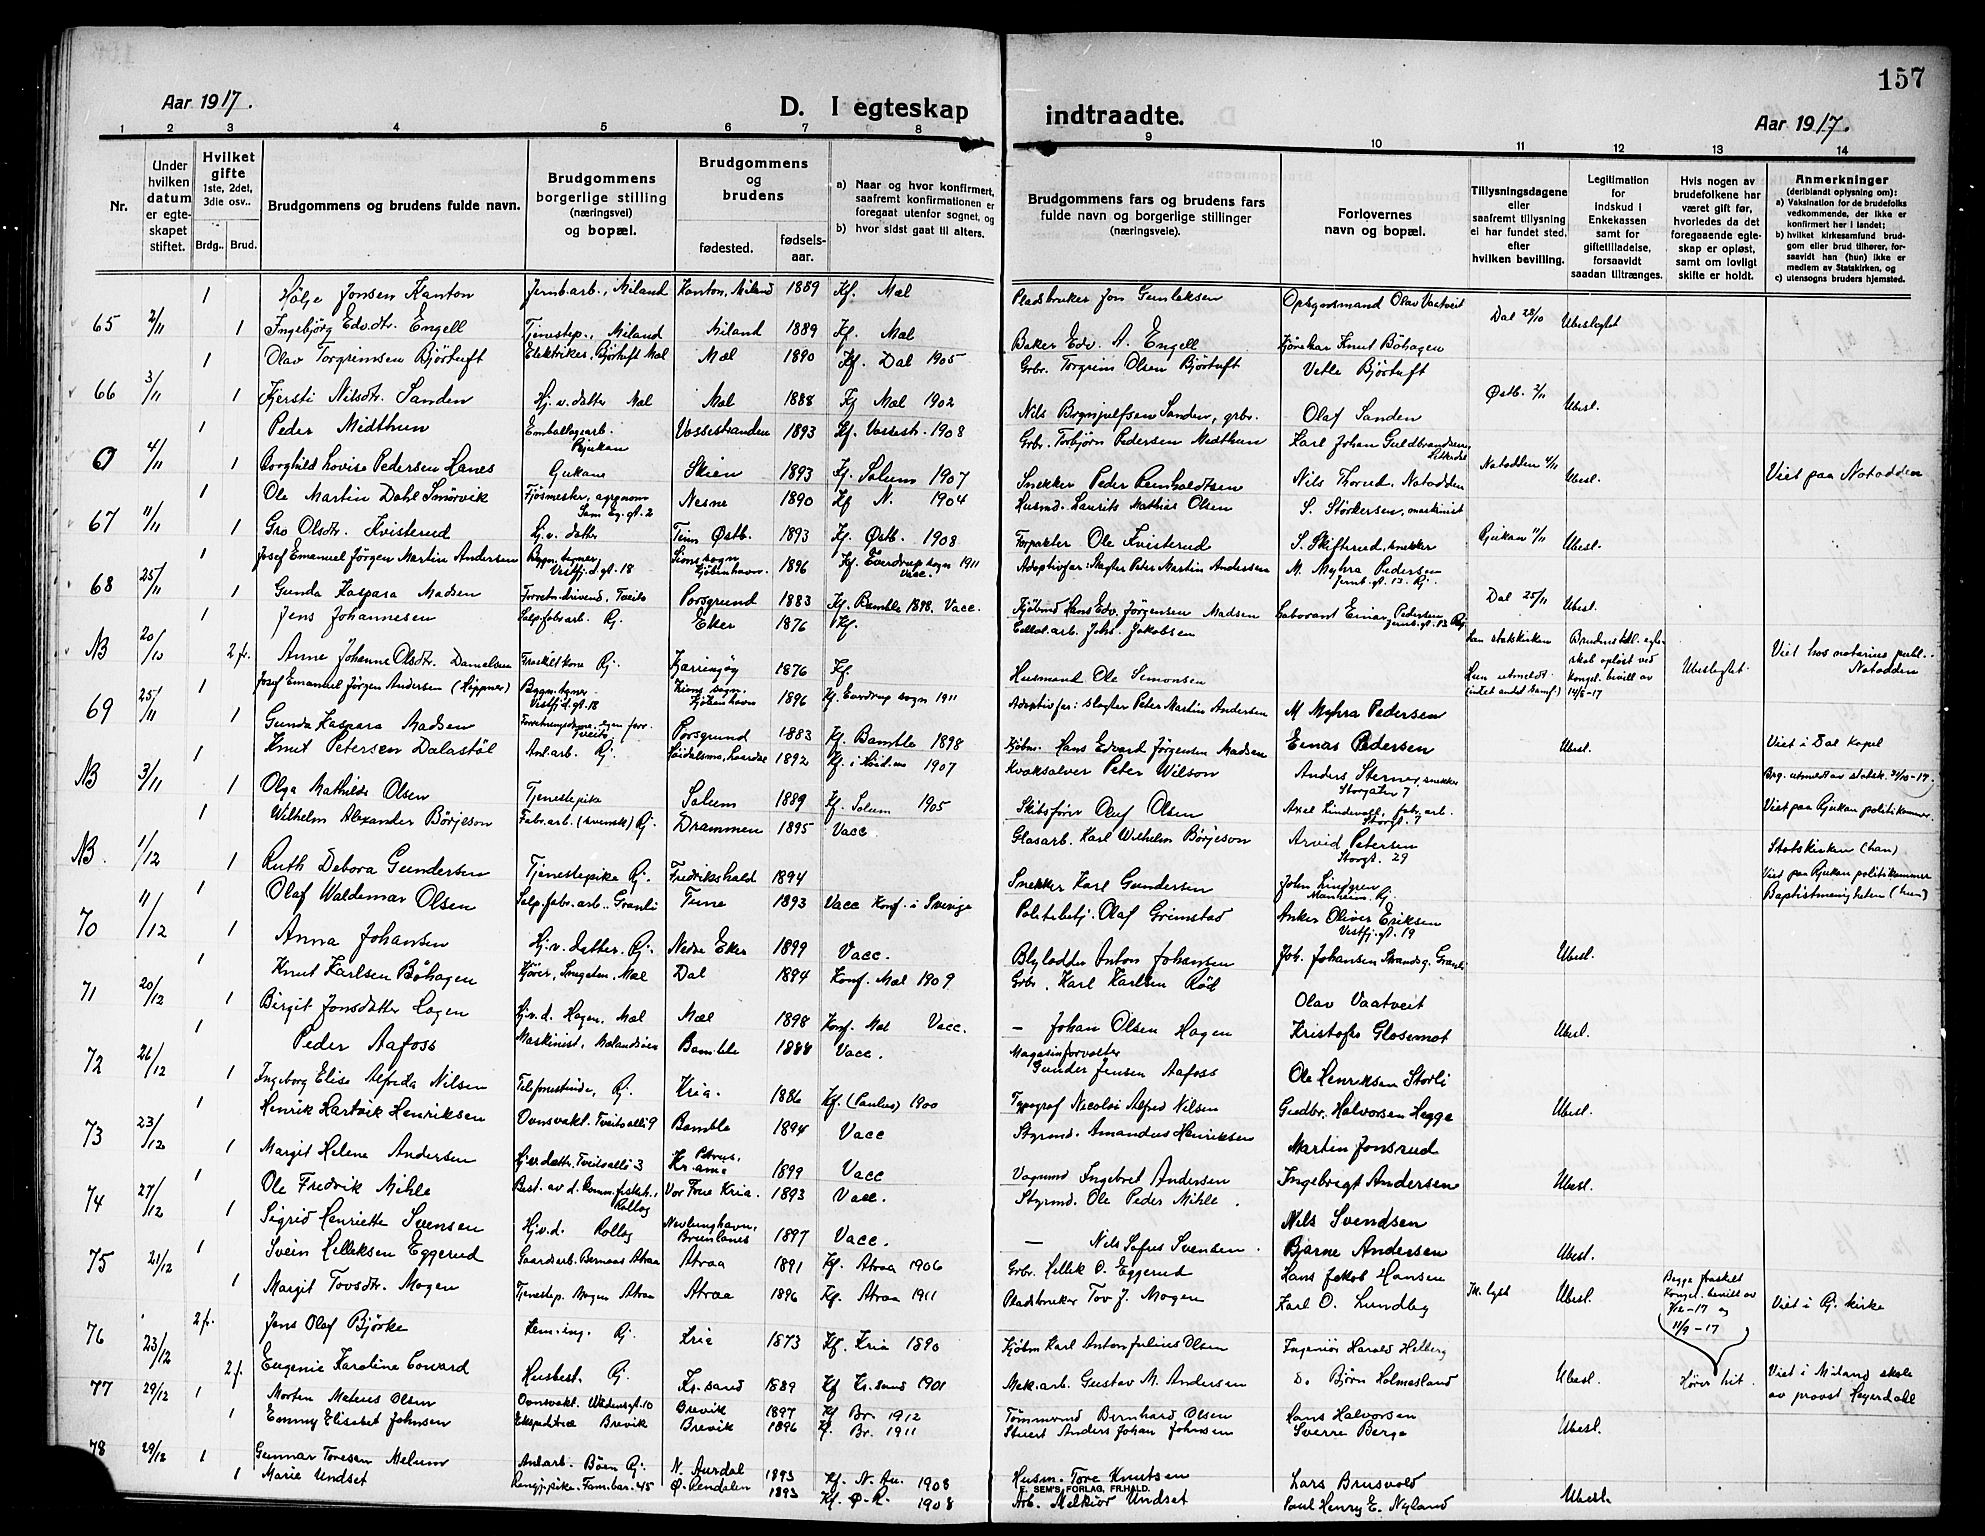 157
Aar 1917.
D. I egteskap indtraadte.
Aar 1917.
1 2 3 4 5 6 7 8 9 10 11 12 13 14
Nr.
Under hvilken datum er egteskapet stiftet.
Hvilket gifte 1ste, 2det, 3die osv..
Brdg.. Brud.
Brudgommens og brudens fulde navn.
Brudgommens borgerlige stilling (næringsvei) og bopæl.
Brudgommens og brudens
fødested. fødsels-aar.
a) Naar og hvor konfirmert, saafremt konfirmationen er foregaat utenfor sognet, og
b) hvor sidst gaat til alters.
Brudgommens fars og brudens fars fulde navn og borgerlige stillinger (næringsveie).
Forlovernes navn og bopæl.
Tillysningsdagene eller saafremt tillysning ei har fundet sted, efter hvilken bevilling.
Legitimation for indskud i Enkekassen samt for giftetilladelse, forsaavidt saadan tiltrænges.
Hvis nogen av brudefolkene har været gift før, hvorledes da det foregaaende egteskap er opløst, samt om lovligt skifte er holdt.
Anmerkninger (deriblandt oplysning om):
a) Vaksination for de brudefolks vedkommende, der ikke er konfirmert her i landet;
b) hvilket kirkesamfund brudgom eller brud tilhører, forsaavidt han (hun) ikke er medlem av Statskirken, og
c) utensogns bruders hjemsted.
1 Hølje Jonsen Kanton Jernbarb., Miland Kanton, Miland 1889 Kf. Mæl Pladsbruker Jon Gunleksen Opsynsmand Olav Vaatveit
65 2/11 1 Ingebjørg Edv.dtr. Engell Tjenestep., Miland Miland 1889 Kf. Mæl Baker Edv. A. Engell Knut Bøhagen Dal 28/10 Ubeslegtet
1 Olav Torgrimsen Bjørtuft Elektriker, Bjørtuft Mæl Mæl 1890 Kf. Dal 1905 Grbr. Torgrim Olsen Bjørtuft Vetle Bjørtuft
66 3/11 1 Kjersti Nilsdtr. Sanden Hj. v. datter Mæl Mæl 1888 Kf Mæl 1902 Nils Brynjulfsen Sanden, grbr. Olaf Sanden Østb. 2/11 Ubesl.
1 Peder Midthun Emballagearb. Rjukan Vossestranden 1893 Kf. Vossestr. 1908 Grbr. Torbjørn Pedersen Midthun Karl Johan Guldbrandsen
0 4/11 1 Borghild Lovise Pedersen Hanes Gjukane Skien 1893 Kf. Solum 1907 Snekker Peder Reinholdtsen Nils Thorud, Notodden Notodden 4/11 Ubesl. Viet paa Notodden
1 Ole Martin Dahl Smørvik Fjøsmester, agronom Sam Eg. gt. 2 Nesne 1890 Kf N. 1904 Husmd. Laurits Mathias Olsen S. Størkersen, maskinist
67 11/11 1 Gro Olsdtr. Kvisterud Hj. v. datter Tinn Østb. 1893 Kf. Østb. 1908 Forpakter Ole Kvisterud S. Skifterud, snekker Rjukan 11/11 Ubesl.
1 Josef Emanuel Jørgen Martin Andersen Bygn. tegner Vestfj.d. gt. 18 Sionssogn Kjøbenhavn. 1896 Kf. Everdrup sogn 1911 Vacc. Adoptivfar: Slagter Peter Martin Andersen M. Myhra Pedersen Jernb. gt. 13. Rj.
68 25/11 1 Gunda Kaspara Madsen Forretn.drivend. Tveito Porsgrund 1883 Kf. Bamble 1898. Vacc. Kjøbmd Hans Edv. Jørgensen Madsen Laborant Einar Pedersen Jernb. gt. 13 Rj. Dal 25/11 Ubesl.
1 Jens Johannesen Salp.fabr.arb. Rj. Eker 1876 Kf. Cellul.arb. Johs. Jakobsen Han statskirken
NB 20/10 2 fr. Anne Johanne Olsdtr. Danielsen Fraskilt kone Rj. Kjerringøy 1876 Kf. Husmand Ole Simonsen Hun utmeldt (intet andet samf.) Brudens tidl. egteskab opløst ved kongel. bevill av 14/8-17 Ubeslegtet Viet hos notarius publ. Notodden
1 Josef Emanuel Jørgen Andersen (Hippner) Bygn. tegner Vestfj.d. gt. 18 Zions sogn. Kjøbenhavn 1896 Kf. Everdrup sogn 1911 Adoptivfar: slagter Peter Martin Andersen M Myhra Pedersen
69 25/11 1 Gunda Kaspara Madsen Tveito Porsgrund 1883 Kf. Bamble 1898 Kjøbm. Hans Edvard Jørgensen Madsen Einar Pedersen Ubesl. Viet i Dal kapel
1 Knut Petersen Dalastøl Anl.arb. Rj. 1892 Kf. i Høid.mo 1907 Kvaksalver Peter Wilson Anders Sterner, snekker Storgaten 7 Brg. utmeldt av statsk. 24/10-17.
NB 3/11 1 Olga Mathilde Olsen Tjenestepike Solum 1889 Kf. Solum 1905 Skibsfører Oluf Olsen Axel Lindevall, fabr. arb. Storgt. 7 Viet paa Rjukan politikammer.
1 Wilhelm Alexander Börjeson Fabr.arb. (svensk) Rj. Drammen 1895 Vacc Glasarb. Karl Wilhelm Börjeson Arvid Petersen Storgt. 29 Statskirken (han)
NB. 1/12 1 Ruth Debora Gundersen Tjenestepike Rj. Fredrikshald 1894 Snekker Karl Gundersen John Lindgren Manheim. Rj. Viet paa Rjukan politikammer Baptistmenigheten (hun)
1 Olaf Waldemar Olsen Salp.fabr.arb. Granli Tune 1893 Vacc Konf. i Sverige Politibetj. Olaf Grimstad Anker Oliver Eriksen Vestfj. gt. 19
70 11/12 1 Anna Johansen Hj. v. datter. Rj. Nedre Eker 1899 Vacc. Blylodder Anton Johansen Joh. Johansen Strandg. Granli Ubesl.
1 Knut Karlsen Bøhagen Kjører, Smeyten, Mæl Dal 1894 Konf. Mæl 1909 Grbr. Karl Karlsen Rød Olav Vaatveit
71 20/12 1 Birgit Jonsdatter Hagen Hj.v.d. Hagen, Mæl Mæl 1898 Konf. Mæl Vacc. – Johan Olsen Hagen Kristofer Glosemot Ubesl.
1 Peder Aafoss Maskinist, Mælandsøen Bamble 1888 Vacc. Magasinforvalter Gunder Jensen Aafoss Ole Henriksen Storli
72 26/12 1 Ingeborg Elise Alfrida Nilsen Telefonistinde, Rj. Kria. 1886 Kf. (Paulus) 1900 Typograf Nicolai Alfred Nilsen Gudbr. Halvorsen Hegge Ubesl.
1 Henrik Hartvik Henriksen Ovnsvakt. Tveitoalle 9 Bamble 1894 Vacc Styrmd. Amandus Henriksen Martin Jonsrud
73 23/12 1 Margit Helene Andersen Hj.v.dattr. Tveitoalle 3 Petrus, Kr.ania 1899 Vacc Vognmd Ingebret Andersen Ingebrigt Andersen Ubesl.
1 Ole Fredrik Mihle Best. av d. komm. fiskeh., Rollag Vor Frue Kria. 1893 Vacc. Styrmd. Ole Peder Mihle Nils Svendsen
74 27/12 1 Sigrid Henriette Svensen Hj.v.d. Rollag Nevlunghavn, Brunlanes 1897 Vacc. – Nils Sofus Svensen Bjarne Andersen Ubesl.
1 Svein Helleksen Eggerud Gaardsarb. Bernaas Atraa Atraa 1891 Kf. Atraa 1906 Grbr. Hellek O. Eggerud Hans Jakob Hansen
75 21/12 1 Margit Tovsdtr. Mogen Tjenestep. Mogen Atraa Atraa 1896 Kf. Atraa 1911 Pladsbruker Tov J. Mogen Karl O. Lundby Ik. lyst Ubesl. Viet i Rj. kirke
2 fr. Jens Olaf Bjørke Kem-ing. Rj. Kria 1873 Kf. Kria 1890 Kjøbm Karl Anton Julius Olsen Ingeniør Harald Helberg Begge fraskilt Kongel. bevill av 7/12-17 og 11/9-17
76 23/12 2 f. Eugenie Karoline Coward Husbest. Rj. Kr.sand 1889 Kf Kr.sand 1901 Mek.arb. Gustav M. Andersen Do. Bjørn Holmesland Ubesl. Hører hit. Viet i Miland skole av provst Heyerdahl
77 29/12 1 Morten Mateus Olsen Ovnsvakt. Uldensgt. 10 Brevik 1897 Kf Br. 1912 Tømmermd Bernhard Olsen Hans Halvorsen
1 Emmy Elisabet Johnsen Ekspeditrice Brevik Brevik 1896 Kf. Br. 1911 Stuert Anders Johan Johnsen Sverre Berge Ubesl.
78 29/12 1 Gunnar Toresen Melum Anl.arb. Bøen Rj. N. Aurdal 1893 Kf. N. Au. 1908 Husm. Tore Knutsen Lars Brusvold
1 Marie Undset Rengj.pike. Fam.bar. 45 Ø. Rendalen 1893 Kf. Ø.R. 1908 Arb. Melkior Undset Paul Henry E. Nyland Ubesl.
E. SEM'S FORLAG, FR.HALD.